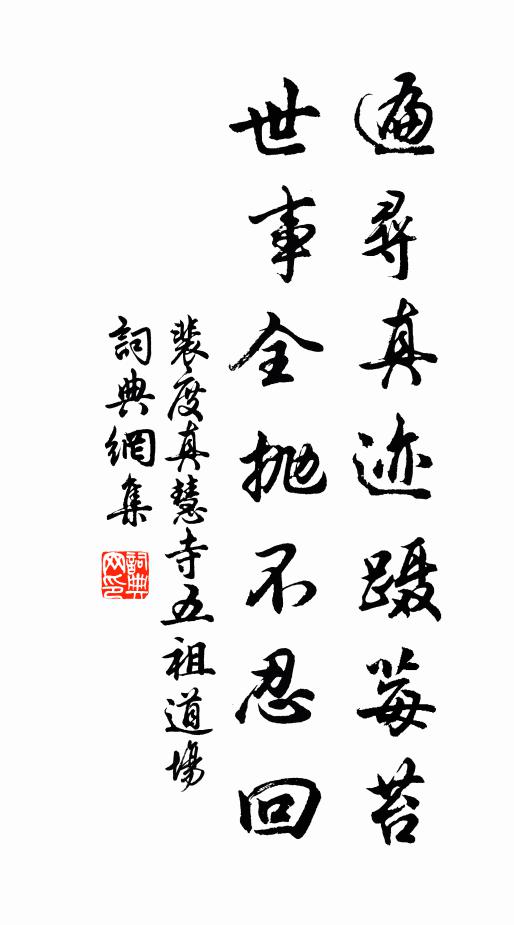 遍尋真迹躡莓苔
世事全抛不忍回
裴度真慧寺五祖道場
詞典網集
詞典網印